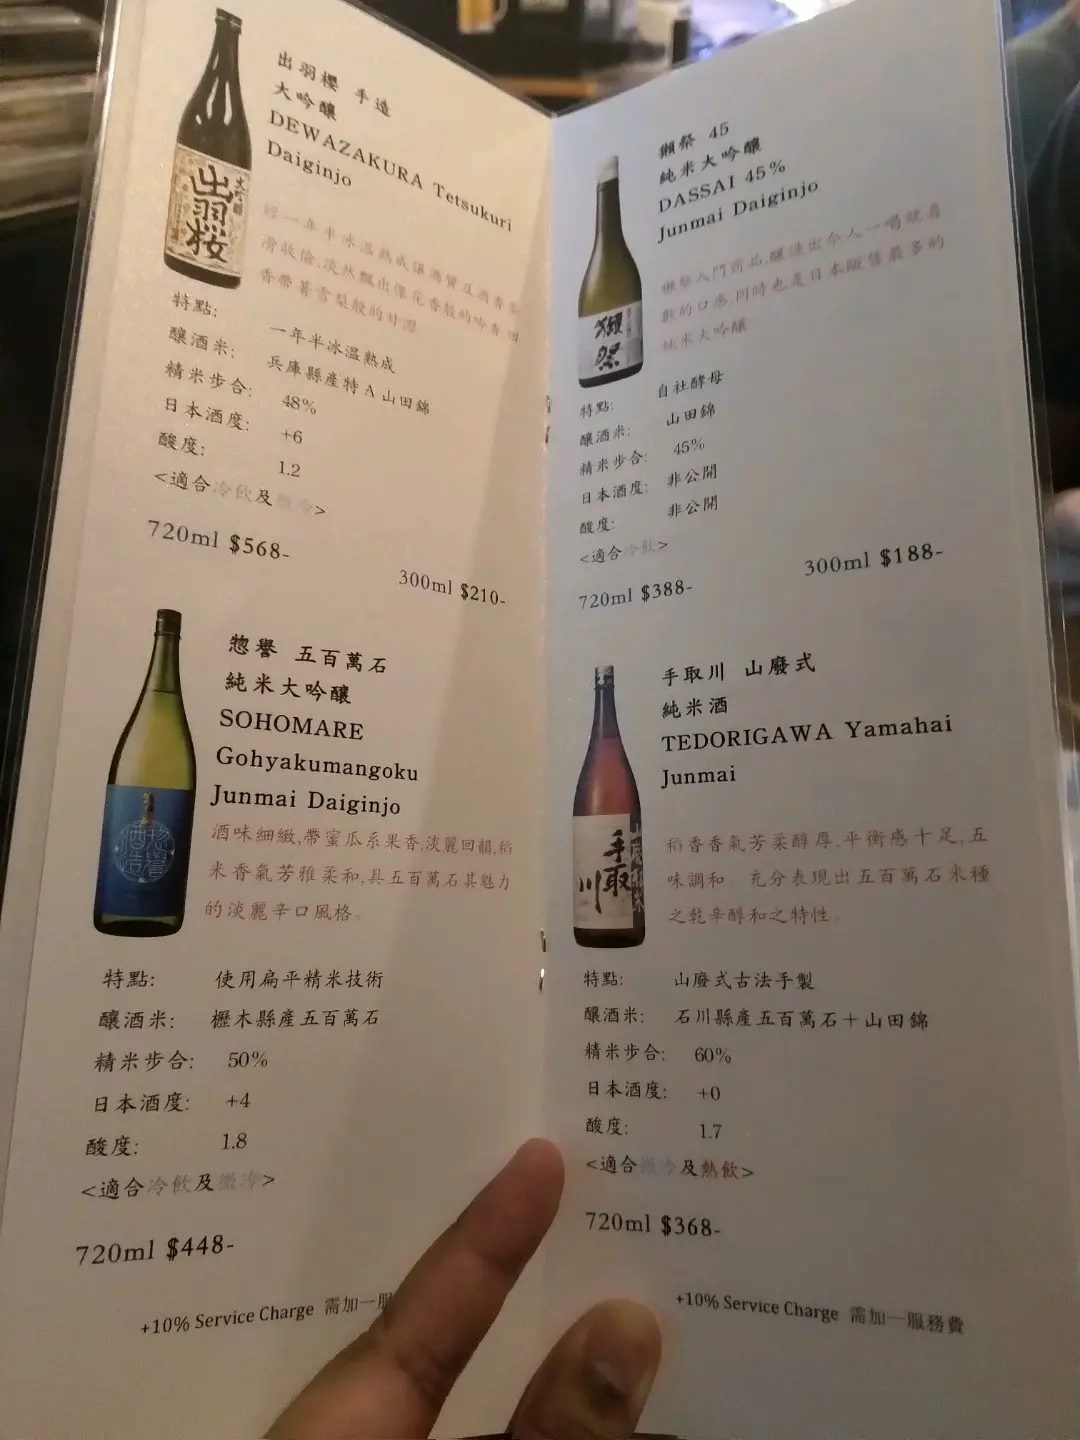 出羽櫻 手造
大吟釀
DEWAZAKURA Tetsukuri
Daiginjo
大吟釀
出羽桜
經一年半冰溫熟成讓酒質及酒香
滑收儉,淡然飄出像花香般的吟香,回
香帶著雪梨般的甘澀
特點: 一年半冰溫熟成
釀酒米: 兵庫縣產特A山田錦
精米步合: 48%
日本酒度: +6
酸度: 1.2
<適合冷飲及微冷>
720ml $568-
300ml $210-
惣譽 五百萬石
純米大吟釀
SOHOMARE
Gohyakumangoku
Junmai Daiginjo
惣譽
酒造
酒味細緻,帶蜜瓜系果香,淡麗回韻,稻
米香氣芳雅柔和,具五百萬石其魅力
的淡麗辛口風格。
特點: 使用扁平精米技術
釀酒米: 櫪木縣產五百萬石
精米步合: 50%
日本酒度: +4
酸度: 1.8
<適合冷飲及微冷>
720ml $448-
+10% Service Charge 需加一服
獺祭 45
純米大吟釀
DASSAI 45%
Junmai Daiginjo
獺祭
獺祭入門商品,釀造出令人一喝就喜
歡的口感,同時也是日本販售最多的
純米大吟釀
特點: 自社酵母
釀酒米: 山田錦
精米步合: 45%
日本酒度: 非公開
酸度: 非公開
<適合冷飲>
720ml $388-
300ml $188-
手取川 山廢式
純米酒
TEDORIGAWA Yamahai
Junmai
手取川
稻香香氣芳柔醇厚,平衡感十足,五
味調和。充分表現出五百萬石米種
之乾辛醇和之特性。
特點: 山廢式古法手製
釀酒米: 石川縣產五百萬石＋山田錦
精米步合: 60%
日本酒度: +0
酸度: 1.7
<適合微冷及熱飲>
720ml $368-
+10% Service Charge 需加一服務費